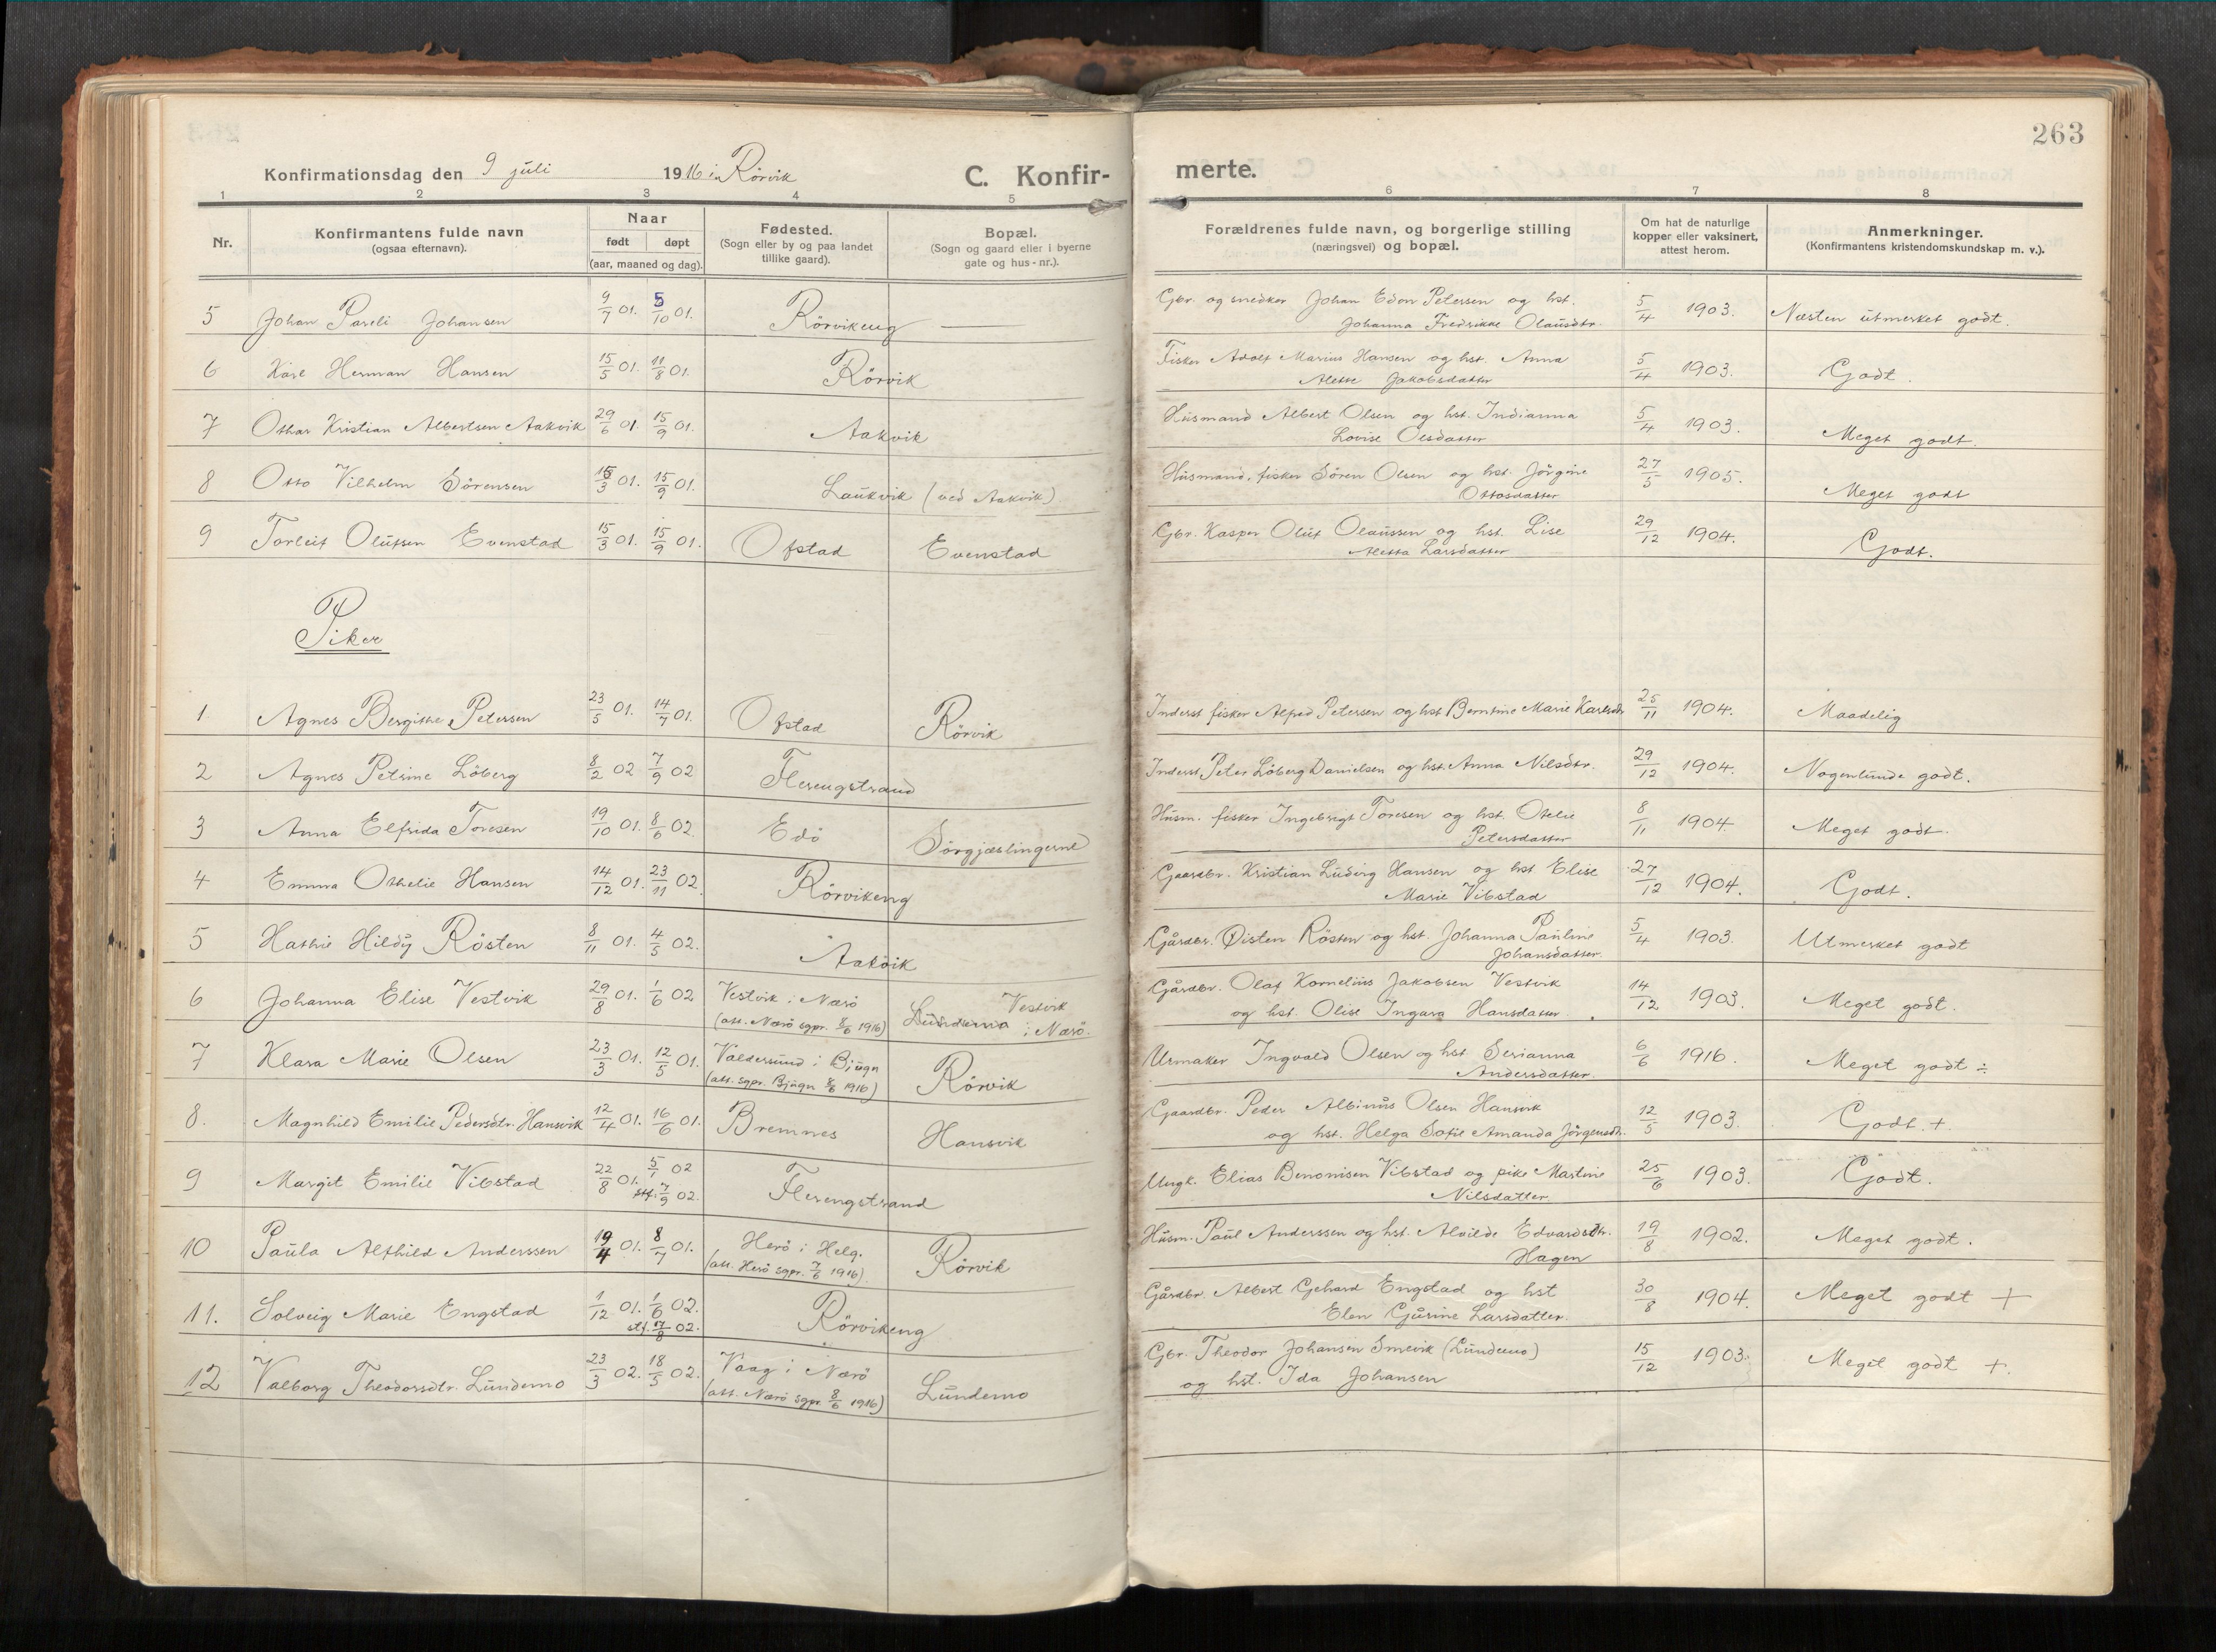 263
Konfirmationsdag den 9 juli 1916 i Rörvik C. Konfir-merte.
1 2 3 4 5 6 7 8
Nr. Konfirmantens fulde navn (ogsaa efternavn). Naar født døpt (aar, maaned og dag). Fødested. (Sogn eller by og paa landet tillike gaard). Bopæl. (Sogn og gaard eller i byerne gate og hus-nr.). Forældrenes fulde navn, og borgerlige stilling (næringsvei) og bopæl. Om hat de naturlige kopper eller vaksinert, attest herom. Anmerkninger. (Konfirmantens kristendomskundskap m. v.).
5 Johan Pareli Johansen 9/7 01. 5/10 01. Rörvikeng — Gbr. og snedker Johan Edon Petersen og hst. 5/4 1903. Næsten utmerket godt.
Johanna Fredrikke Olausdtr.
6 Kåre Herman Hansen 15/5 01. 11/8 01. Rörvik Fisker Adolf Marius Hansen og hst. Anna 5/4 1903. Godt.
Alette Jakobsdatter
7 Othar Kristian Albertsen Aakvik 29/6 01 15/9 01. Aakvik Husmand Albert Olsen og hst. Indianna 5/4 1903. Meget godt.
Lovise Olsdatter
8 Otto Vilhelm Sörensen 15/3 01. 15/9 01. Laukvik (ved Aakvik) Husmand, fisker Sören Olsen og hst. Jörgine 27/5 1905. Meget godt
Ottosdatter
9 Torleif Olufsen Evenstad 15/3 01. 15/9 01. Ofstad Evenstad Gbr. Kasper Oluf Olaussen og hst. Lise 29/12 1904. Godt.
Aletta Larsdatter
Piker
1 Agnes Bergithe Petersen 23/5 01. 14/7 01. Ofstad Rörvik Inderst fisker Alfred Petersen og hst Berntine Marie Karlsdtr 25/11 1904. Maadelig
2 Agnes Petrine Löberg 8/2 02 7/9 02 Flerengstrand Inderst Peter Löberg Danielsen og hst. Anna Nilsdtr. 29/12 1904. Nogenlunde godt.
3 Anna Elfrida Toresen 19/10 01. 8/6 02. Edö Sörgjæslingerne Husm. fisker Ingebrigt Toresen og hst. Otelie 8/11 1904 Meget godt.
Petersdatter
4 Emma Othelie Hansen 14/12 01. 23/11 02. Rörvikeng Gaardbr. Kristian Ludvig Hansen og hst Elise 27/12 1904. Godt.
Marie Vibstad
5 Hathie Hildy Rösten 8/11 01. 4/5 02. Aakvik Gårdbr. Øisten Rösten og hst. Johanna Pauline 5/4 1903. Utmerket godt
Johansdatter.
6 Johanna Elise Vestvik 29/8 01. 1/6 02 Vestvik i Nærö Vestvik Gårdbr. Olaf Kornelius Jakobsen Vestvik 14/12 1903. Meget godt.
(att. Nærö sgpr. 8/6 1916) i Nærö. og hst. Olise Ingara Hansdatter.
7 Klara Marie Olsen 23/3 01. 12/5 01. Valdersund i Bjugn Rörvik Urmaker Ingvald Olsen og hst. Serianna 6/6 1916. Meget godt ÷
(att. sgpr. Bjugn 8/6 1916) Andersdatter.
8. Magnhild Emilie Pedersdtr. Hansvik 12/4 01. 16/6 01. Bremnes Hansvik Gaardbr. Peder Albinus Olsen Hansvik 12/5 1903. Godt. +
og hst. Helga Sofie Amanda Jörgensdtr.
9 Margit Emilie Vibstad 22/8 01. 5/1 02 Flerengstrand Ungk. Elias Benonisen Vibstad og pike Martine 25/6 1903. Godt.
stf. 7/9 02. Nilsdatter.
10 Paula Alfhild Anderssen 19/4 01. 8/7 01. Herö i Helg. Rörvik Husm. Paul Anderssen og hst. Alvilde Edvardsdtr. 19/8 1902. Meget godt.
(att. Herö sgpr. 7/6 1916). Hagen
11. Solveig Marie Engstad 1/12 01. 1/6 02. Rörvikeng Gårdbr. Albert Gehard Engstad og hst 30/8 1904. Meget godt +
stf. 17/8 02. Elen Gurine Larsdatter.
12 Valborg Theodorsdtr. Lundemo 23/3 02. 18/5 02. Vaag i Nærö Lundemo Gbr. Theodor Johansen Smevik (Lundemo) 15/12 1903. Meget godt +.
(att. Nærö sgpr. 8/6 1916) og hst. Ida Johansen